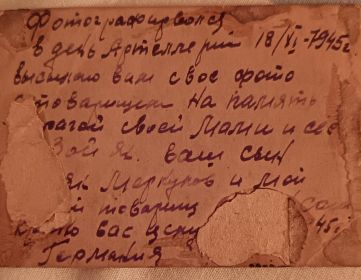 Фотографировался
в день Артеллерий 18/VI-1945г.
высылаю вам свое фото
с товарищем на память
рагой своей Мами и сес
Зой як. ваш сын
як Меркулов и мой
й товарищ
вас
45г.
Германия